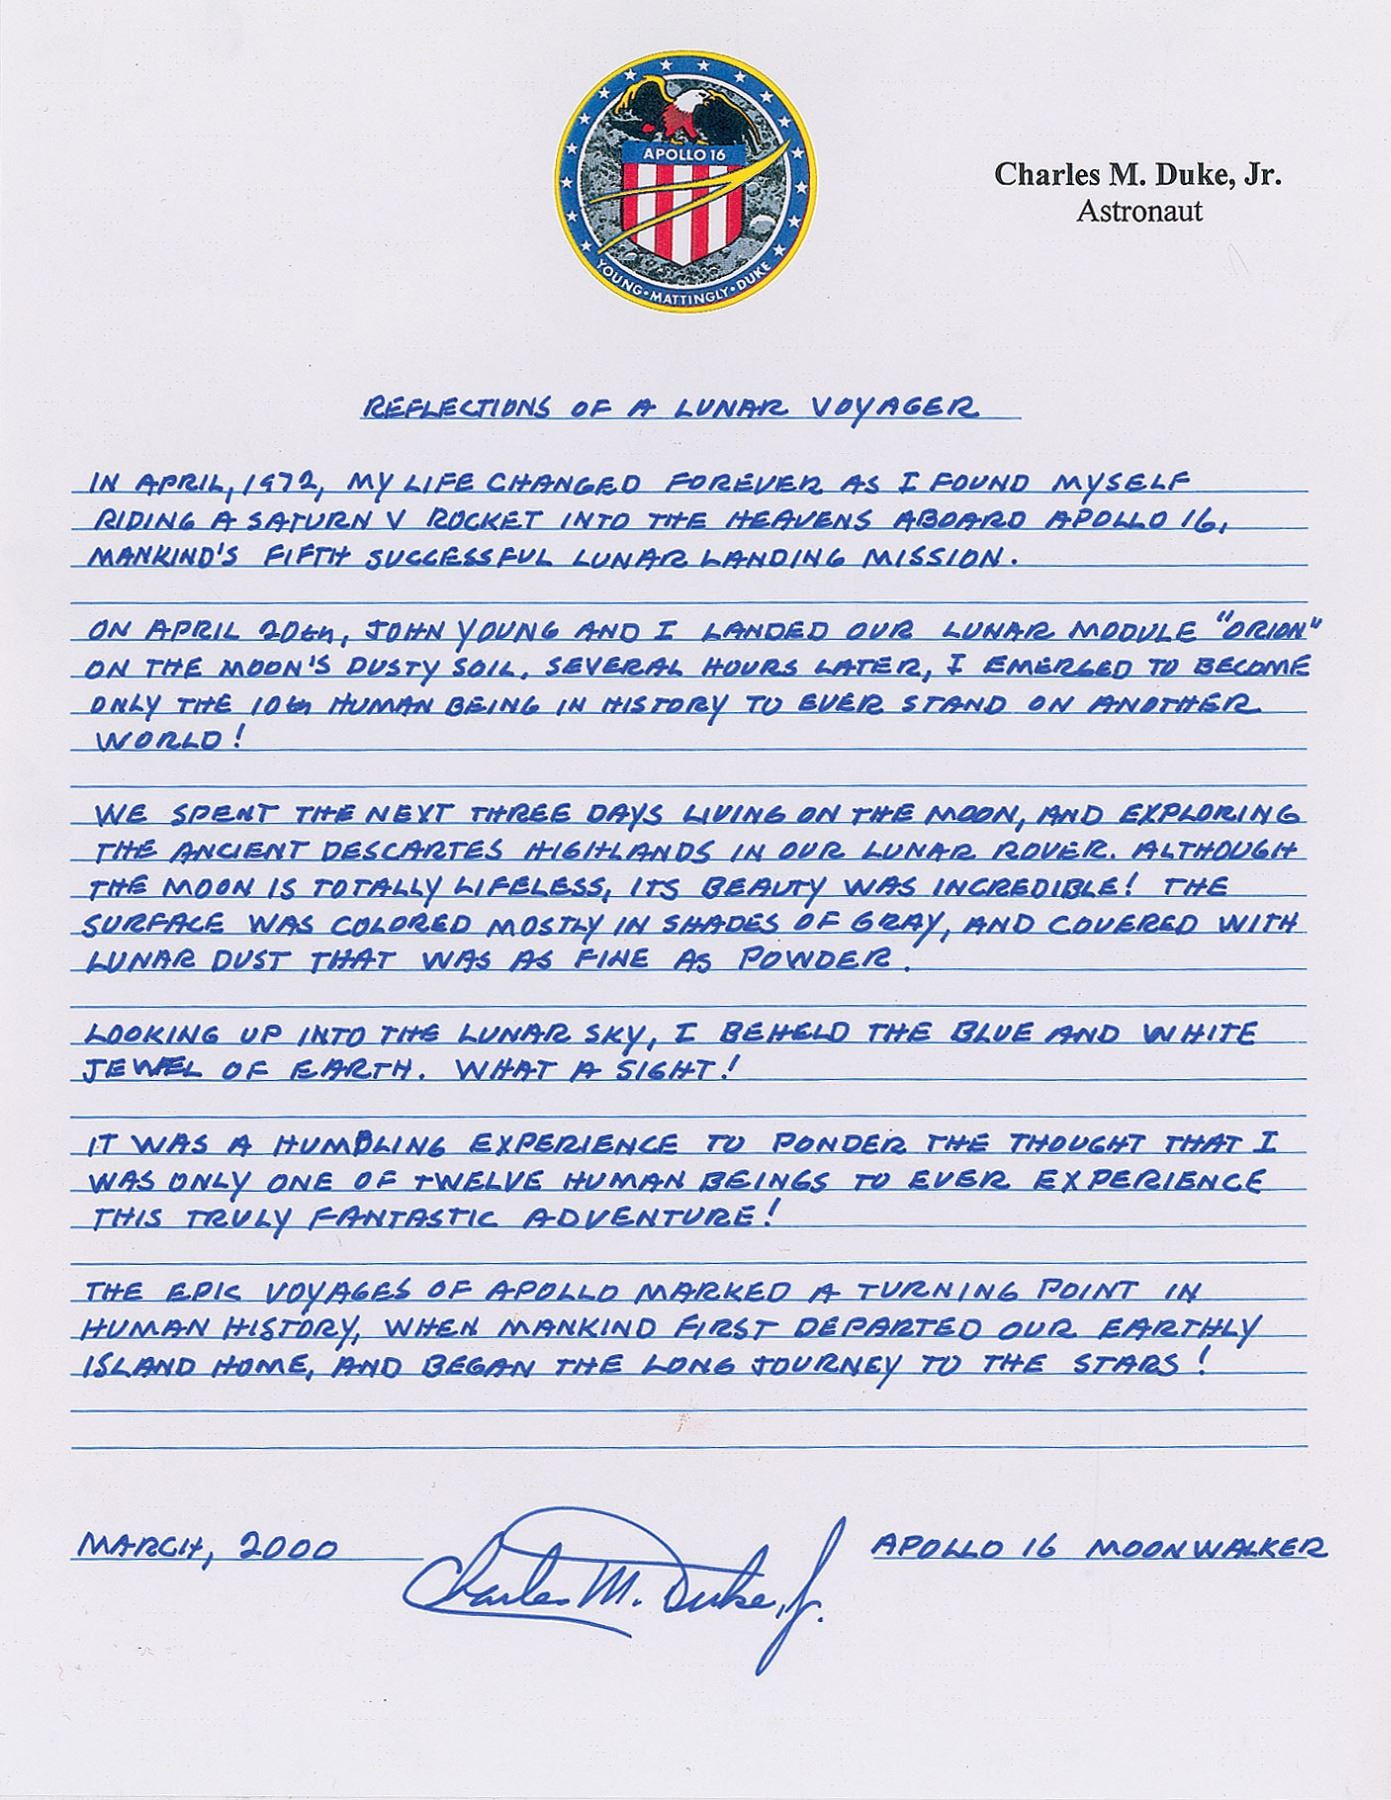 APOLLO 16
YOUNG • MATTINGLY • DUKE
Charles M. Duke, Jr.
Astronaut
REFLECTIONS OF A LUNAR VOYAGER
IN APRIL, 1972, MY LIFE CHANGED FOREVER AS I FOUND MYSELF
RIDING A SATURN V ROCKET INTO THE HEAVENS ABOARD APOLLO 16,
MANKIND'S FIFTH SUCCESSFUL LUNAR LANDING MISSION.
ON APRIL 20th, JOHN YOUNG AND I LANDED OUR LUNAR MODULE "ORION"
ON THE MOON'S DUSTY SOIL. SEVERAL HOURS LATER, I EMERGED TO BECOME
ONLY THE 10th HUMAN BEING IN HISTORY TO EVER STAND ON ANOTHER
WORLD!
WE SPENT THE NEXT THREE DAYS LIVING ON THE MOON, AND EXPLORING
THE ANCIENT DESCARTES HIGHLANDS IN OUR LUNAR ROVER. ALTHOUGH
THE MOON IS TOTALLY LIFELESS, ITS BEAUTY WAS INCREDIBLE! THE
SURFACE WAS COLORED MOSTLY IN SHADES OF GRAY, AND COVERED WITH
LUNAR DUST THAT WAS AS FINE AS POWDER.
LOOKING UP INTO THE LUNAR SKY, I BEHELD THE BLUE AND WHITE
JEWEL OF EARTH. WHAT A SIGHT!
IT WAS A HUMBLING EXPERIENCE TO PONDER THE THOUGHT THAT I
WAS ONLY ONE OF TWELVE HUMAN BEINGS TO EVER EXPERIENCE
THIS TRULY FANTASTIC ADVENTURE!
THE EPIC VOYAGES OF APOLLO MARKED A TURNING POINT IN
HUMAN HISTORY, WHEN MANKIND FIRST DEPARTED OUR EARTHLY
ISLAND HOME, AND BEGAN THE LONG JOURNEY TO THE STARS!
MARCH, 2000 Charles M. Duke, Jr. APOLLO 16 MOONWALKER